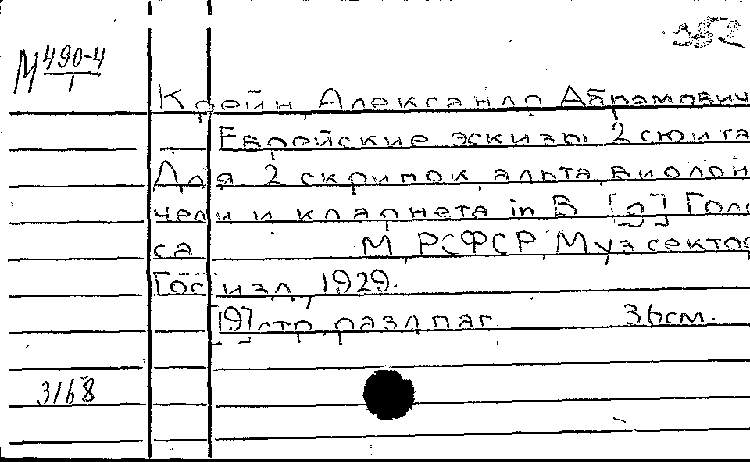 352
М 490-4
1
Крейн, Александр Абрамович
Еврейские эскизы 2 сюита
Для 2 скрипок, альта, виолон
чели и кларнета in B [ ] Голо
са М., РСФСР, Муз сектор
Гос изд, 1929.
[9] стр. разл паг 36см.
3168